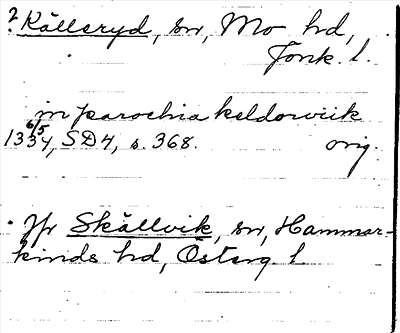 ? Källeryd, sn, Mo hd,
Jönk. l.
in parochia keldorviik
6/5
1334, SD4, s. 368. orig.
. Jfr Skällvik, sn, Hammar-
kinds hd, Österg. l.